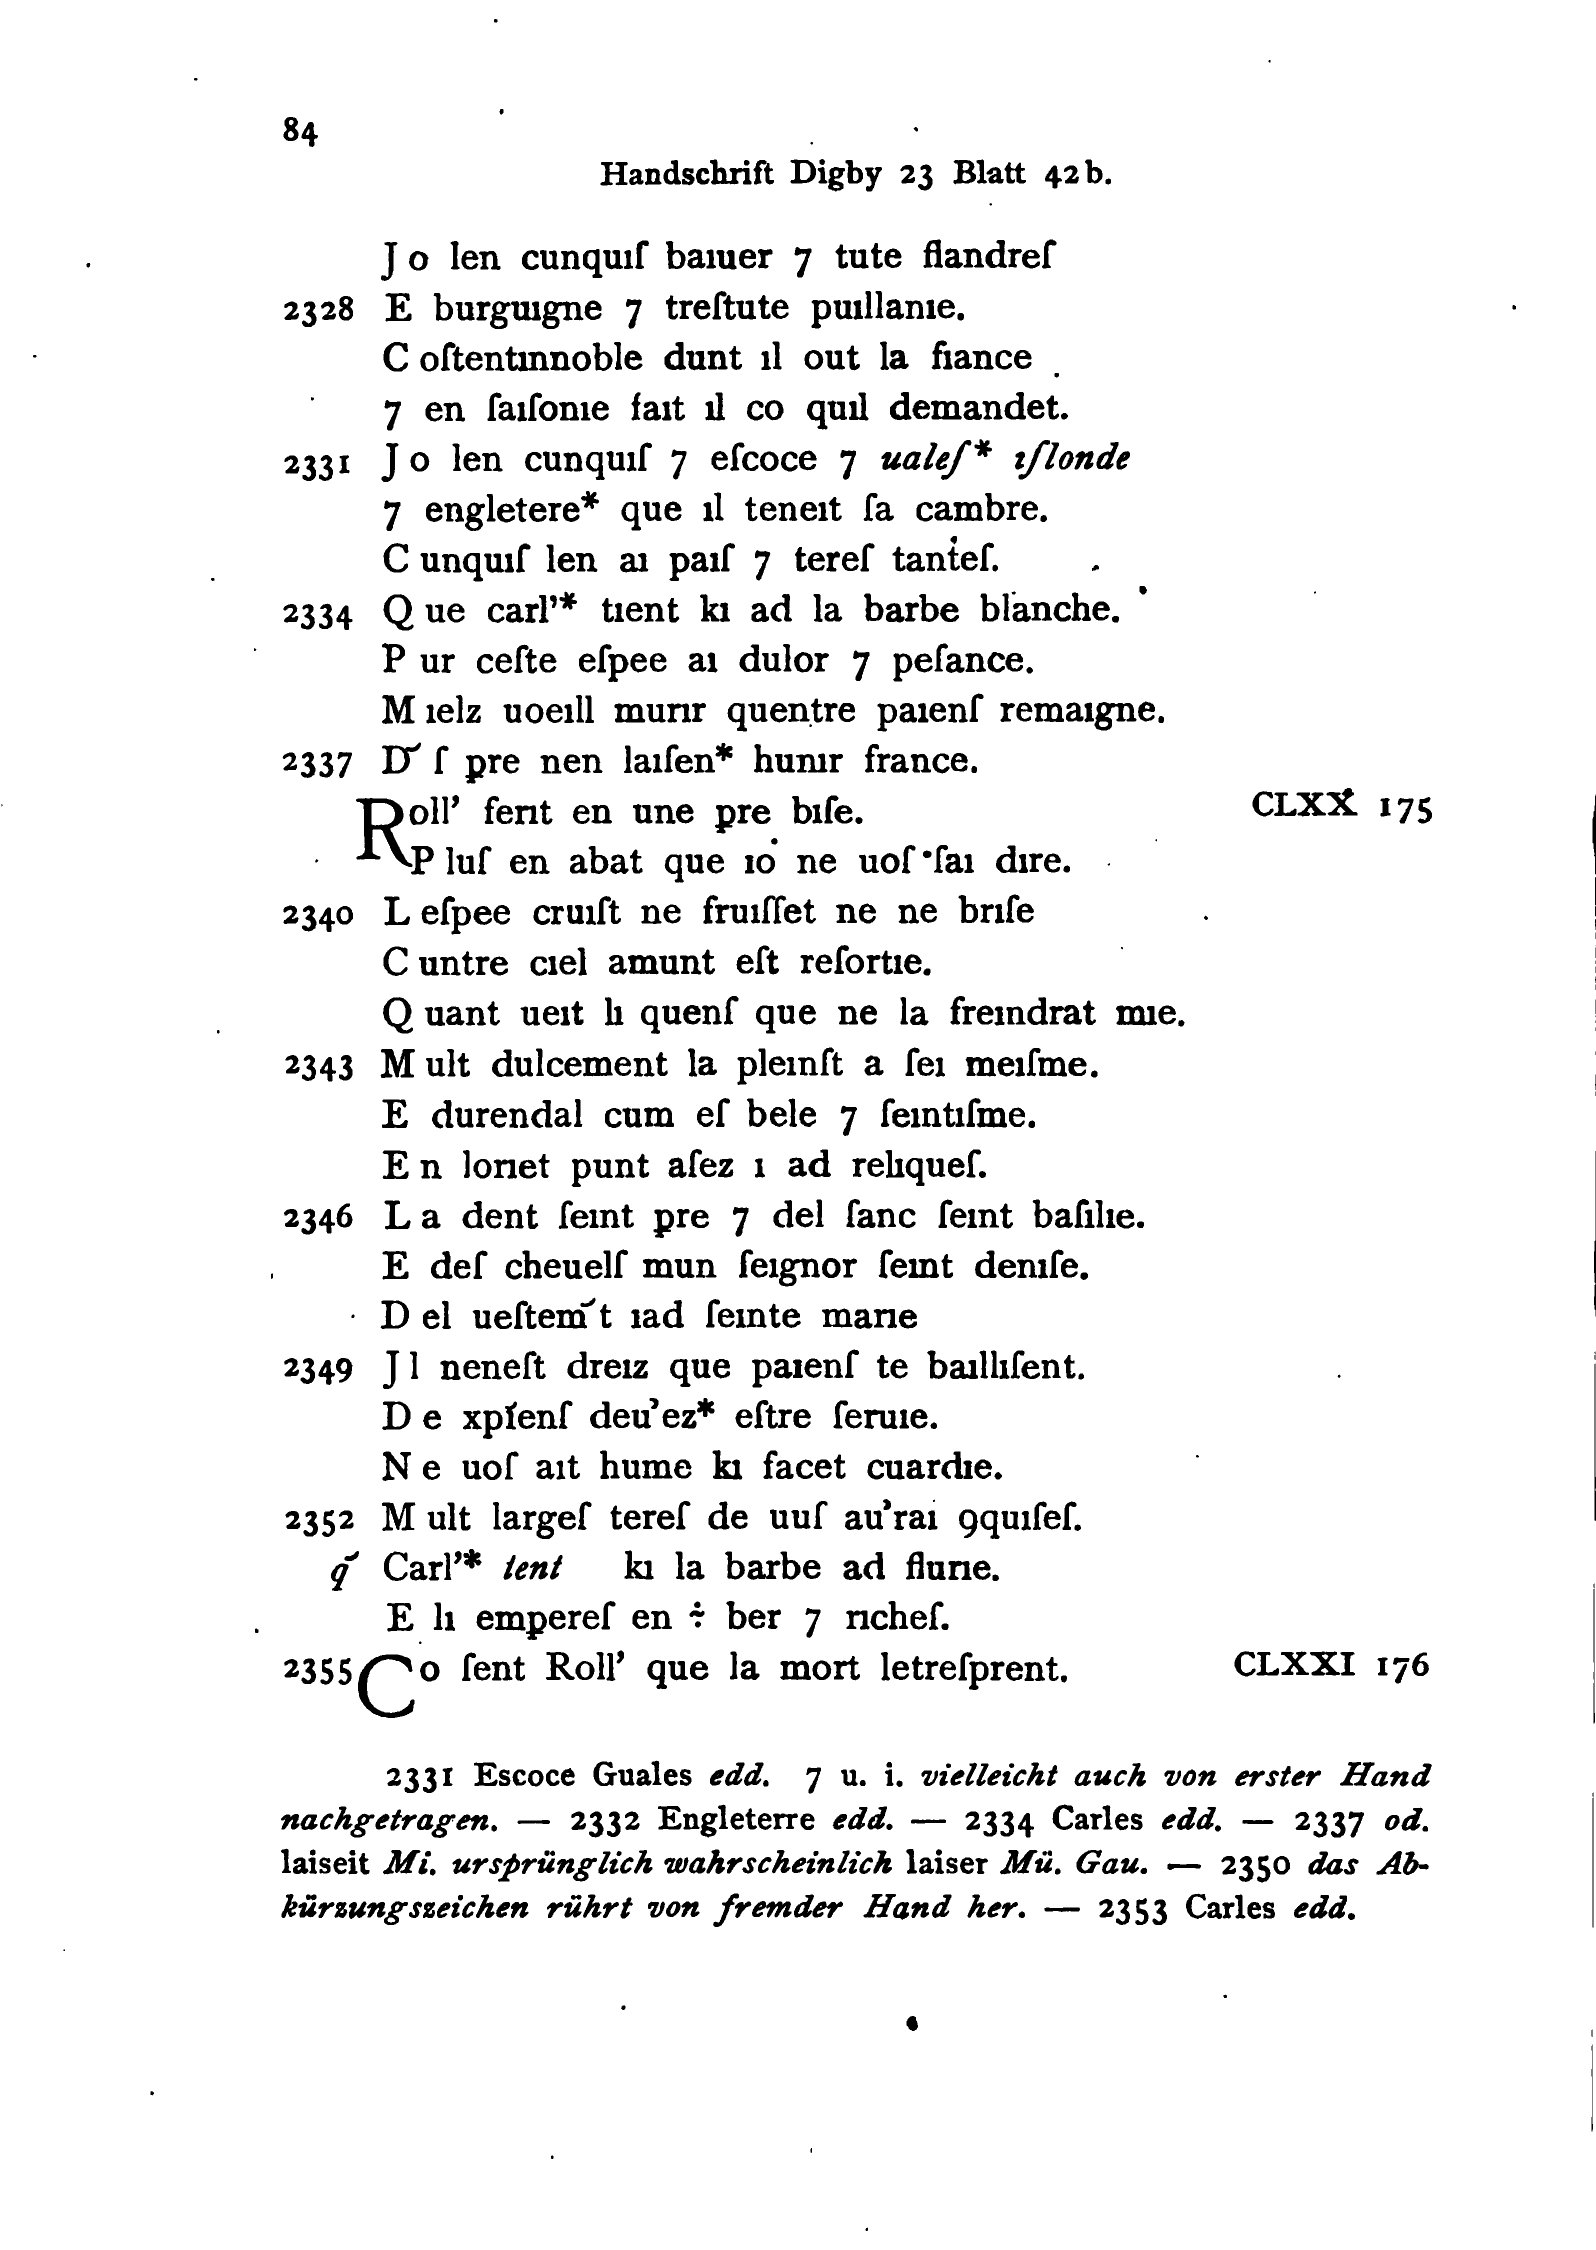 84
Handschrift Digby 23 Blatt 42b.
J o len cunquıſ baıuer 7 tute flandreſ
2328 E burguıgne 7 treſtute puıllanıe.
C oſtentınnoble dunt ıl out la fiance
7 en ſaıſonıe faıt ıl co quıl demandet.
2331 J o len cunquıſ 7 eſcoce 7 ualeſ* ıſlonde
7 engletere* que ıl teneıt ſa cambre.
C unquıſ len aı paıſ 7 tereſ tanteſ.
2334 Q ue carl’* tıent kı ad la barbe blanche.
P ur ceſte eſpee aı dulor 7 peſance.
M ıelz uoeıll murır quentre paıenſ remaıgne.
2337 D̄ ſ p̱re nen laıſen* hunır france.
Roll’ ferıt en une p̱re bıſe. CLXX 175
P luſ en abat que ıo ne uoſ ſaı dıre.
2340 L eſpee cruıſt ne fruıſſet ne ne brıſe
C untre cıel amunt eſt reſortıe.
Q uant ueıt lı quenſ que ne la freındrat mıe.
2343 M ult dulcement la pleınſt a ſeı meıſme.
E durendal cum eſ bele 7 ſeıntıſme.
E n lorıet punt aſez ı ad relıqueſ.
2346 L a dent ſeınt p̱re 7 del ſanc ſeınt baſılıe.
E deſ cheuelſ mun ſeıgnor ſeınt denıſe.
D el ueſtem̄t ıad ſeınte marıe
2349 J l neneſt dreız que paıenſ te baıllıſent.
D e xp̄ıenſ deu’ez* eſtre ſeruıe.
N e uoſ aıt hume kı facet cuardıe.
2352 M ult largeſ tereſ de uuſ au’rai 9quıſeſ.
q̄ Carl’* tent kı la barbe ad flurıe.
E lı empereſ en ÷ ber 7 rıcheſ.
2355 Co ſent Roll’ que la mort letreſprent. CLXXI 176
2331 Escoce Guales edd. 7 u. i. vielleicht auch von erster Hand
nachgetragen. — 2332 Engleterre edd. — 2334 Carles edd. — 2337 od.
laiseit Mi. ursprünglich wahrscheinlich laiser Mü. Gau. — 2350 das Ab-
kürzungszeichen rührt von fremder Hand her. — 2353 Carles edd.